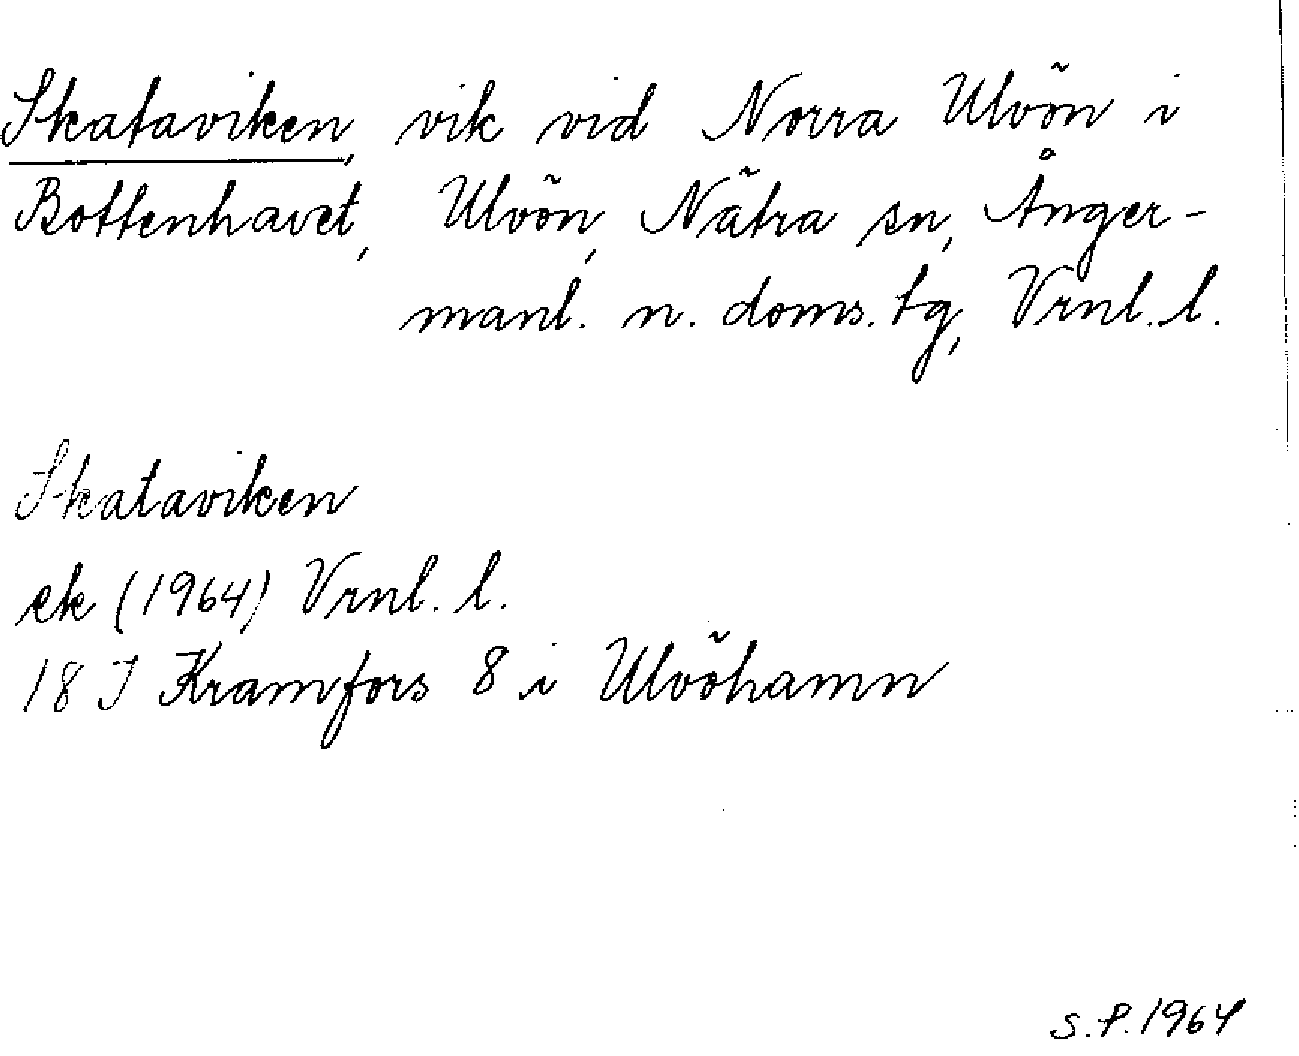 Skataviken, vik vid Norra Ulvön i
Bottenhavet, Ulvön, Nätra sn, Ånger-
manl. n. doms. tg, Vrnl. l.
Skataviken
ek (1964) Vrnl. l.
18 J Kramfors 8 i Ulvöhamn
S.P. 1964